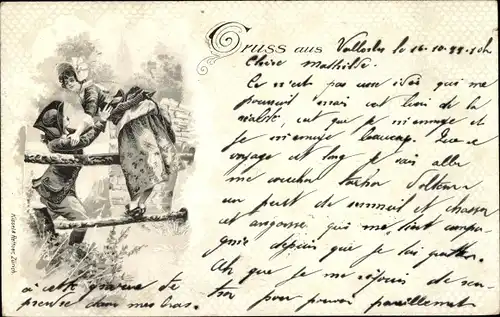 Gruss aus Vallorbe le 16.10.99. 10h
Chère Mathilde.
Ce n'est pas une idée qui me
poursuit mais cet bien de la
réalité, cet que je m'ennuye et
je m'ennuye beaucoup. Que ce
voyage et long je vais aller
me coucher tacher
un peut de sommeil et chasser
cet angoisse qui me tient compa-
gnie depuis que je t'ai quitter.
Ah que je me réjouis de ren-
trer pour pouvoir pareillement
à cette gravure te
prendre dans mes bras.
Künzli Zürich.